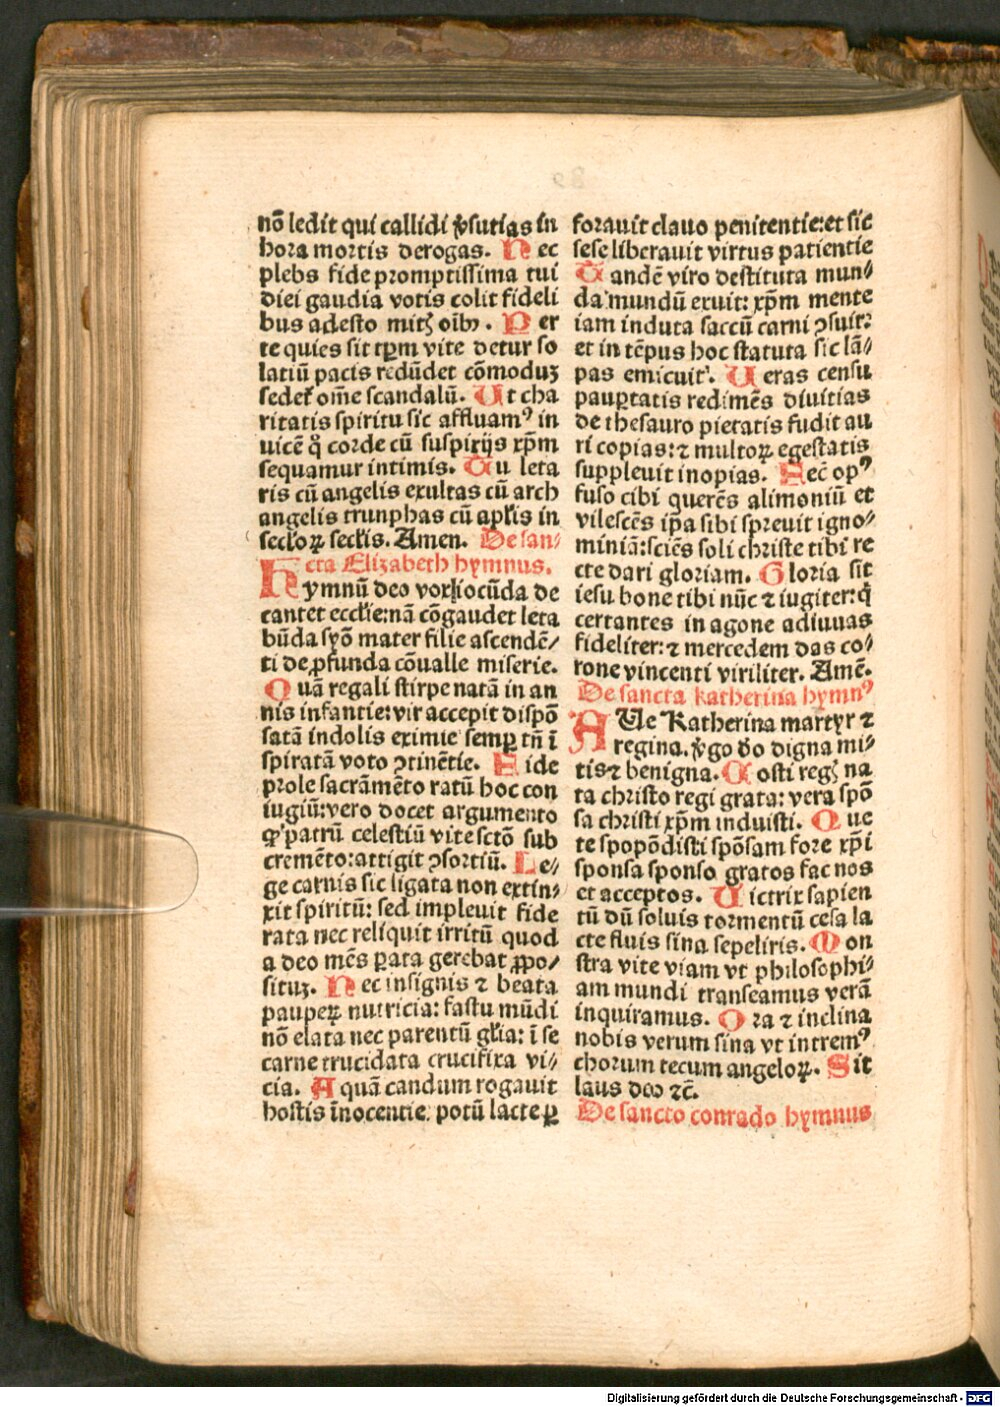 nō ledit qui callidi v̄sutias in
hora mortis derogas. Nec
plebs fide promptissima tui
diei gaudia votis colit fideli
bus adesto mitꝫ oībꝰ. Per
te quies sit tꝑm vite detur so
latiū pacis redūdet cōmoduꝫ
sedet̄ om̄e scandalū. Ut cha
ritatis spiritu sic affluamꝰ in
uicē ꝙ corde cū suspirijs xp̄m
sequamur intimis. Tu leta
ris cū angelis exultas cū arch
angelis triunphas cū aplis in
sclōꝝ seclis. Amen. De san-
cta Elizabeth hymnus.
Hymnū deo vox iocūda de
cantet eccl̄ie: nā cōgaudet leta
būda syō mater filie ascendē/
ti de ꝓfunda cōualle miserie.
Quā regali stirpe natā in an
nis infantie: vir accepit dispō
satā indolis eximie semꝑ tn̄ ī
spiratā voto ↄtinētie. Fide
prole sacrāmēto ratū hoc con
iugiū: vero docet argumento
ꝙ patrū celestiū vite sctō sub
cremēto: attigit ↄsortiū. Le/
ge carnis sic ligata non extin/
xit spiritū: sed impleuit fide
rata nec reliquit irritū quod
a deo mēs ꝑata gerebat ꝓpo/
situꝫ. Nec insignis ⁊ beata
pauperꝝ nutricia: fastu mūdi
nō elata nec parentū gl̄ia: ī se
carne trucidata crucifixa vi/
cia. Aquā candum rogauit
hostis īnocentie. potū lacte ꝑ
forauit clauo penitentie: et sic
sese liberauit virtus patientie
Tandē viro destituta mun/
da mundū exuit: xp̄m mente
iam induta saccū carni ↄsuit:
et in tēpus hoc statuta sic lā/
pas emicuit. Ueras censu
pauꝑtatis redimēs diuitias
de thesauro pietatis fudit au
ri copias: ⁊ multoꝝ egestatis
suppleuit inopias. Hec̄ opꝰ
fuso cibi querēs alimoniū et
vilescēs ip̄a sibi spreuit igno/
miniā: sciēs soli christe tibi re
cte dari gloriam. Gloria sit
iesu bone tibi nūc ⁊ iugiter: ꝙ
certantes in agone adiuuas
fideliter: ⁊ mercedem das co/
rone vincenti viriliter. Amē.
De sancta katherina hymnꝰ
AUe Katherina martyr ⁊
regina. v̄go deo digna mi/
tis ⁊ benigna. Costi regꝭ na
ta christo regi grata: vera spō
sa christi xp̄m induisti. Que
te spopōdisti spōsam fore xp̄i
sponsa sponso gratos fac nos
et acceptos. Uictrix sapien
tū dū soluis tormentū cesa la
cte fluis sina sepeliris. Mon
stra vite viam vt philosophi/
am mundi transeamus verā
inquiramus. Ora ⁊ inclina
nobis verum sina vt intremꝰ
chorum tecum angeloꝝ. Sit
laus deo ⁊c̄.
De sancto conrado hymnus
Digitalisierung gefördert durch die Deutsche Forschungsgemeinschaft - DFG